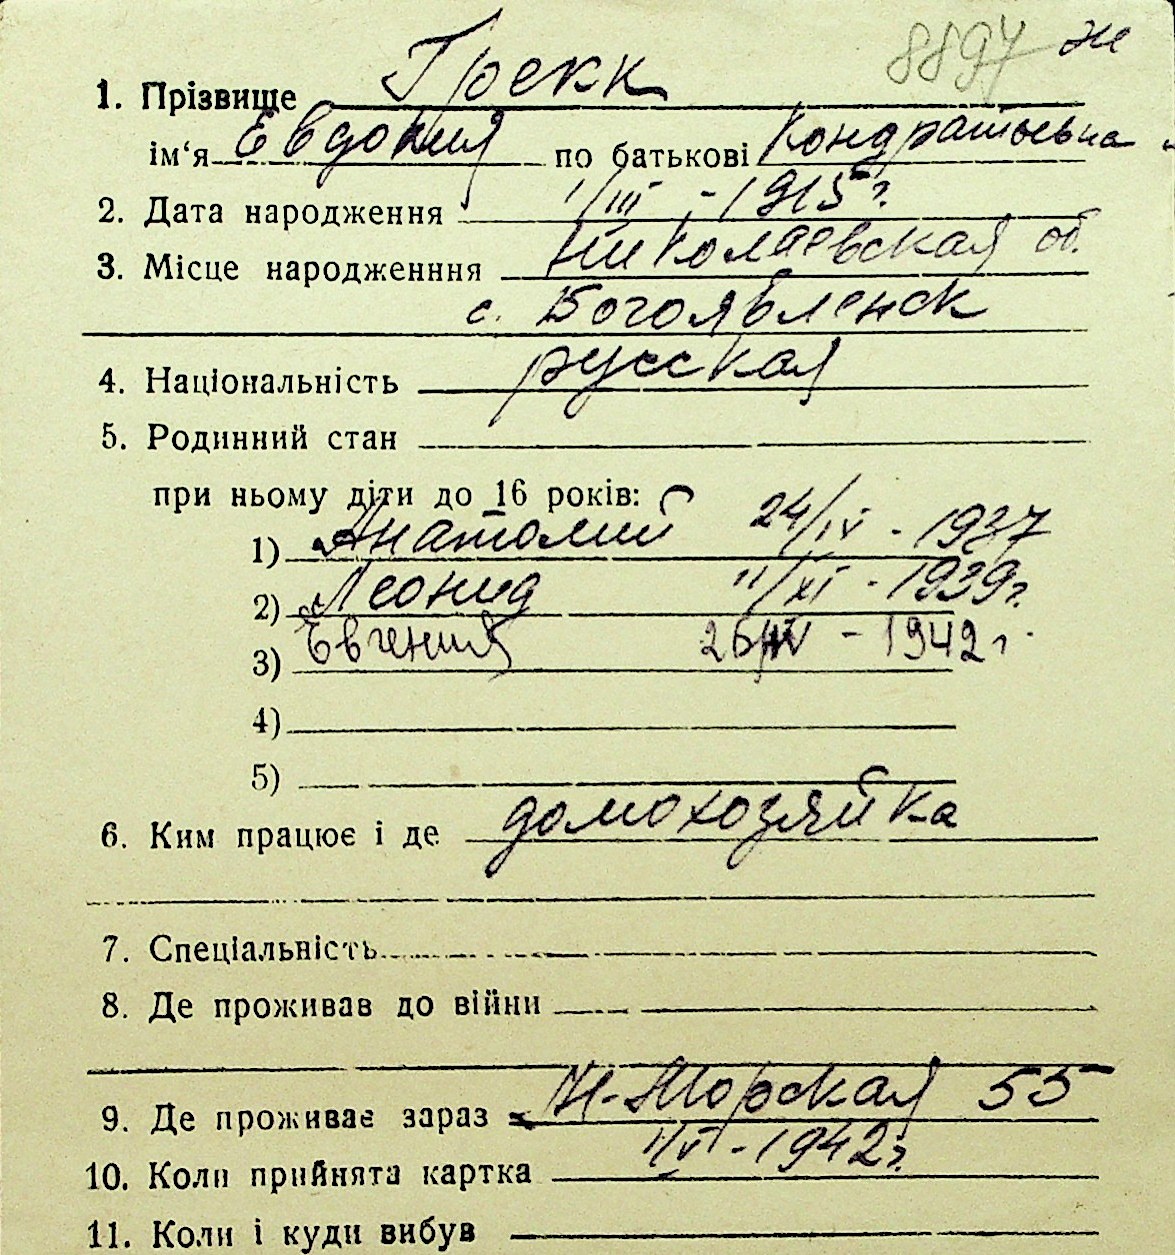 8897 ж
1. Прізвище Грекк
ім‘я Евдокия по батькові Кондратьевна
2. Дата народження 1/III - 1915 г.
3. Місце народженння Николаевская об.
с. Богоявленск
4. Національність русская
5. Родинний стан
при ньому діти до 16 років:
1) Анатолий 24/IV - 1937
2) Леонид 11/XI - 1939 г.
3) Евгения 26/IV - 1942 г.
4)
5)
6. Ким працює і де домохозяйка
7. Спеціальність
8. Де проживав до війни
9. Де проживає зараз Н-Морская 55
10. Коли прийнята картка 1/VI - 1942 г.
11. Коли і куди вибув